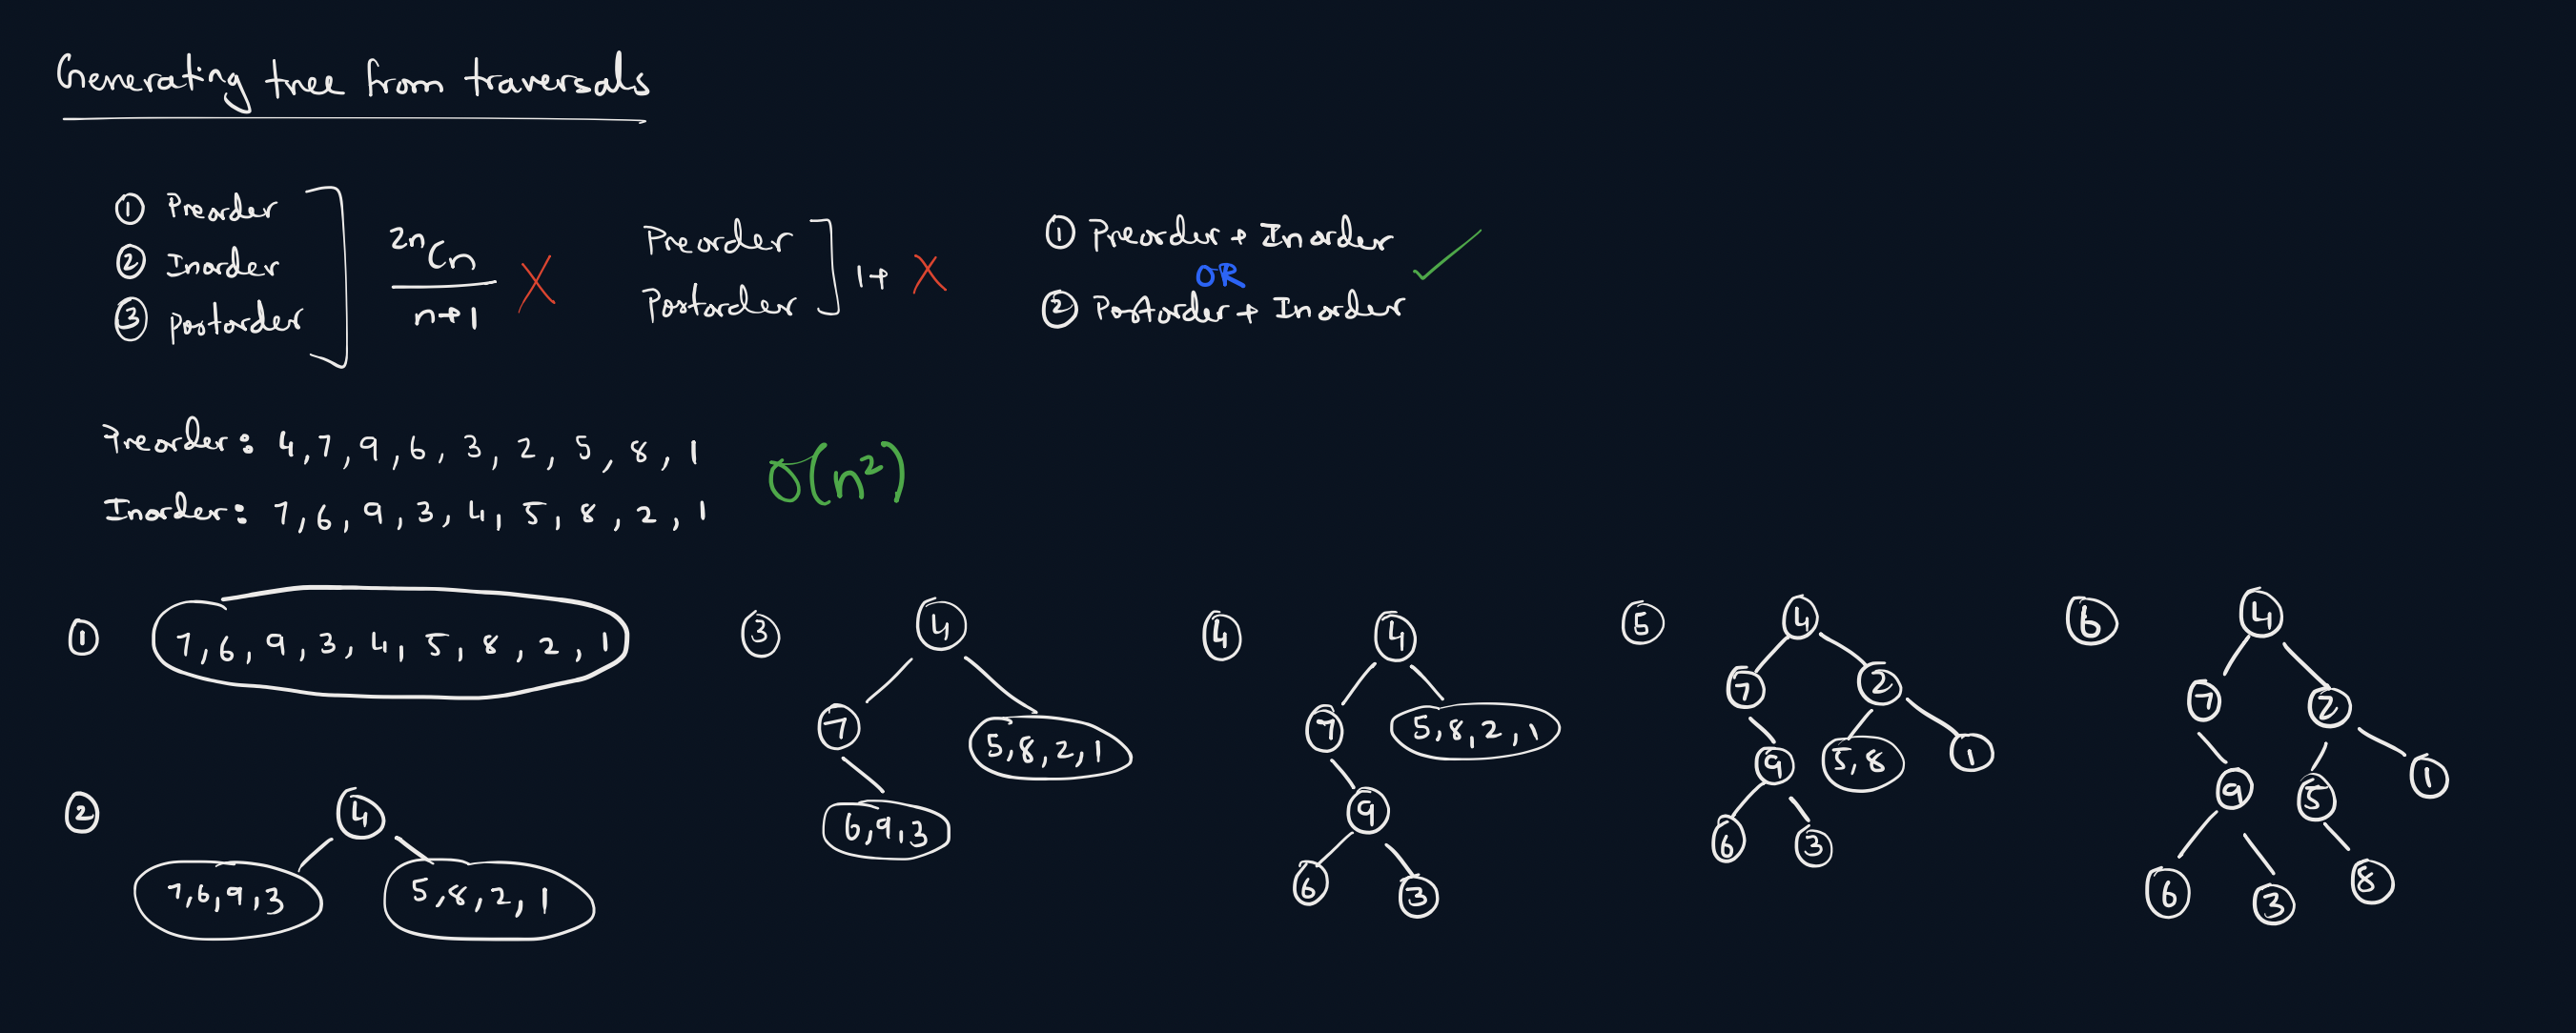 Generating tree from traversals
① Preorder
② Inorder
③ Postorder
2nCn
n+1
X
Preorder
Postorder
1+ X
① Preorder + Inorder
OR
② Postorder + Inorder
✓
Preorder: 4,7,9,6,3,2,5,8,1
Inorder: 7,6,9,3,4,5,8,2,1
O(n²)
① 7,6,9,3,4,5,8,2,1
② 4
7,6,9,3 5,8,2,1
③ 4
7 5,8,2,1
6,9,3
④ 4
7 5,8,2,1
9
6 3
⑤ 4
7 2
9 5,8 1
6 3
⑥ 4
7 2
9 5 1
6 3 8